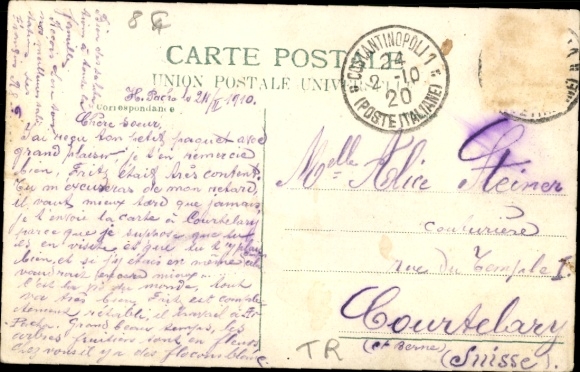 8
CARTE POSTALE
UNION POSTALE UNIVERSELLE
COSTANTINOPOLI 1
14
2-10
20
(POSTE ITALIANE)
H. Pacha le 24/II 1910.
Correspondance
Chère sœur,
J'ai reçu ton petit paquet avec
grand plaisir, je t'en remercie
bien, Fritz était très content.
Tu m'excuseras de mon retard,
il vaut mieux tard que jamais,
je t'envoie la carte à Courtelary
parce que je suppose que tu
es en visite et que tu t'y plais
bien, et si j'y étais en même
vaudrait encore mieux...
C'est la fin du monde, tout
va très bien, Fritz est complè
tement rétabli, il travaille à
Pacha. Grand beau temps, les
arbres fruitiers sont en fleurs,
chez vous il y a des flocons blancs.
famille
Melle Alice Steiner
couturière
rue du Temple I
Courtelary
(Ct Berne)
(Suisse).
TR